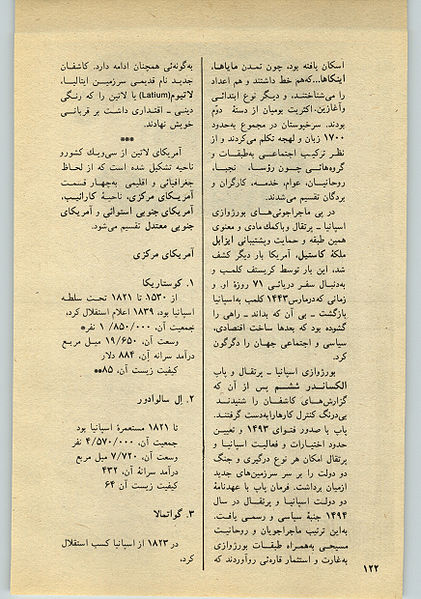 اسکان یافته بود، چون تمدن مایاها،
اینکاها...که‌هم خط داشتند و هم اعداد
را می‌شناختند، و دیگر نوع ابتدائی
وآغازین. اکثریت بومیان از دستهٔ دوّم
بودند. سرخپوستان در مجموع به‌حدود
۱۷۰۰ زبان و لهجه تکلم می‌کردند و از
نظر ترکیب اجتماعی به‌طبقات و
گروه‌هائی چون رؤسا، نجبا،
روحانیان، عوام، خدمه، کارگران و
بردگان تقسیم می‌شدند.
در پی ماجراجوئی‌های بورژوازی
اسپانیا ـ پرتقال و باکمک مادی و معنوی
همین طبقه و حمایت وپشتیبانی ایزابل
ملکهٔ کاستیل، آمریکا بار دیگر کشف
شد، این بار توسط کریستف کلمب و
به‌دنبال سفر دریائی ۷۱ روزهٔ او. و
زمانی که‌درمارس۱۴۴۳ کلمب به‌اسپانیا
بازگشت ـ بی آن که بداند ـ راهی را
گشوده بود که بعدها ساخت اقتصادی،
سیاسی و اجتماعی جهان را دگرگون
کرد.
بورژوازی اسپانیا ـ پرتقال و پاپ
الکساندر ششم پس از آن که
گزارش‌های کاشفان را شنیدند
بی‌درنگ کنترل کارهارابه‌دست گرفتند.
پاپ با صدور فتوای ۱۴۹۳ و تعیین
حدود اختیارات و فعالیت اسپانیا و
پرتقال امکان هر نوع درگیری و جنگ
دو دولت را بر سر سرزمین‌های جدید
ازمیان برداشت. فرمان پاپ با عهدنامهٔ
دو دولت اسپانیا و پرتقال در سال
۱۴۹۴ جنبهٔ سیاسی و رسمی یافت.
به‌این ترتیب ماجراجویان و روحانیت
مسیحی به‌همراه طبقات بورژوازی
به‌غارت و استثمار قاره‌ئی روآوردند که
به‌گونه‌ئی همچنان ادامه دارد. کاشفان
جدید نام قدیمی سرزمین ایتالیا،
لاتیوم(Latium) یا لاتین را که رنگی
دینی ـ اقتداری داشت بر قربانی
خویش نهادند.
***
آمریکای لاتین از سی‌ویک کشورو
ناحیه تشکیل شده است که از لحاظ
جغرافیائی و اقلیمی به‌چهار قسمت
آمریکای مرکزی، ناحیهٔ کارائیب،
آمریکای جنوبی استوائی و آمریکای
جنوبی معتدل تقسیم می‌شود.
آمریکای مرکزی
۱. کوستاریکا
از ۱۵۳۰ تا ۱۸۲۱ تحت سلطه
اسپانیا بود، ۱۸۳۹ اعلام استقلال کرد،
جمعیت آن، ۱/۸۵۰/۰۰۰ نفر*
وسعت آن، ۱۹/۶۵۰ میل مربع
درآمد سرانه آن، ۸۸۴ دلار
کیفیت زیست آن، ۸۵**
۲. اِل سالوادور
تا ۱۸۲۱ مستعمرهٔ اسپانیا بود
جمعیت آن، ۴/۵۷۰/۰۰۰ نفر
وسعت آن، ۷/۷۲۰ میل مربع
درآمد سرانهٔ آن، ۴۳۲
کیفیت زیست آن ۶۴
۳. گواتمالا
در ۱۸۲۳ از اسپانیا کسب استقلال
کرد،
۱۲۲